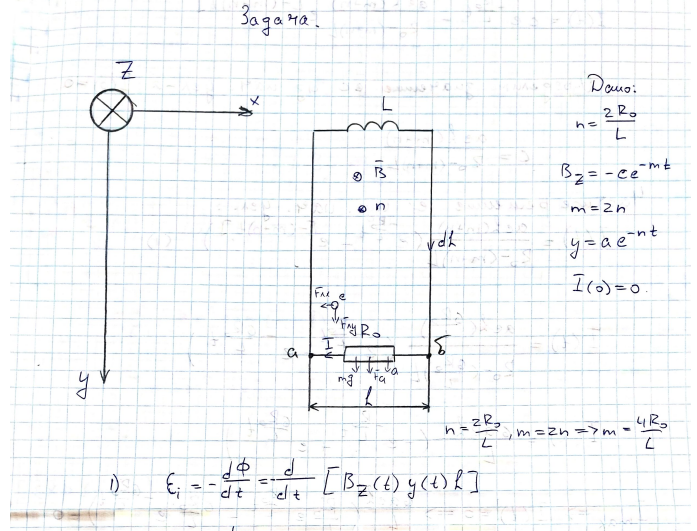 Задача.
Z
x
y
L
B̄
n
dℓ
Fлx e
Fлy
R₀
I
a
б
mg Fa a
ℓ
Дано:
n = 2R₀/L
B_Z = -ce^{-mt}
m = 2n
y = ae^{-nt}
I(0) = 0.
n = 2R₀/L, m = 2n => m = 4R₀/L
1) Ɛi = -dФ/dt = d/dt [B_Z(t) y(t) ℓ]